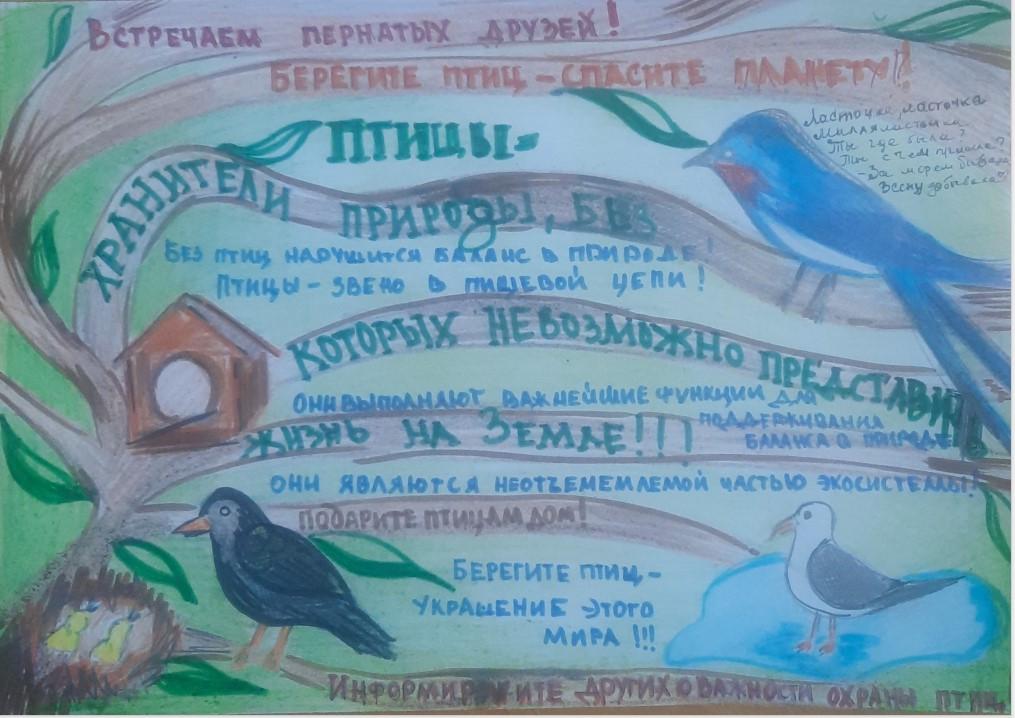 ВСТРЕЧАЕМ ПЕРНАТЫХ ДРУЗЕЙ!
БЕРЕГИТЕ ПТИЦ - СПАСИТЕ ПЛАНЕТУ!
Ласточка, ласточка
Милая ласточка
Ты где была?
Ты с чем пришла?
- За морем бывала
Весну добывала
ПТИЦЫ-
ХРАНИТЕЛИ ПРИРОДЫ, БЕЗ
БЕЗ ПТИЦ НАРУШИТСЯ БАЛАНС В ПРИРОДЕ!
ПТИЦЫ - ЗВЕНО В ПИЩЕВОЙ ЦЕПИ!
КОТОРЫХ НЕВОЗМОЖНО ПРЕДСТАВИТЬ
ОНИ ВЫПОЛНЯЮТ ВАЖНЕЙШИЕ ФУНКЦИИ ДЛЯ
ПОДДЕРЖИВАНИЯ
БАЛАНСА В ПРИРОДЕ
ЖИЗНЬ НА ЗЕМЛЕ!!!
ОНИ ЯВЛЯЮТСЯ НЕОТЪЕМЕМЛЕМОЙ ЧАСТЬЮ ЭКОСИСТЕМЫ!
ПОДАРИТЕ ПТИЦАМ ДОМ!
БЕРЕГИТЕ ПТИЦ -
УКРАШЕНИЕ ЭТОГО
МИРА !!!
ИНФОРМИРУЙТЕ ДРУГИХ О ВАЖНОСТИ ОХРАНЫ ПТИЦ.